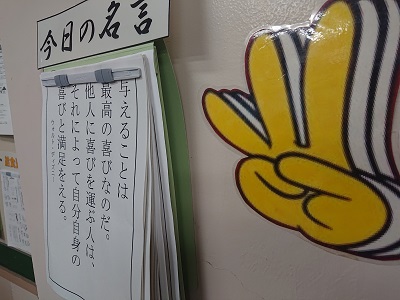 今日の名言
与えることは
最高の喜びなのだ。
他人に喜びを運ぶ人は、
それによって自分自身の
喜びと満足をえる。
ウォルト・ディズニー